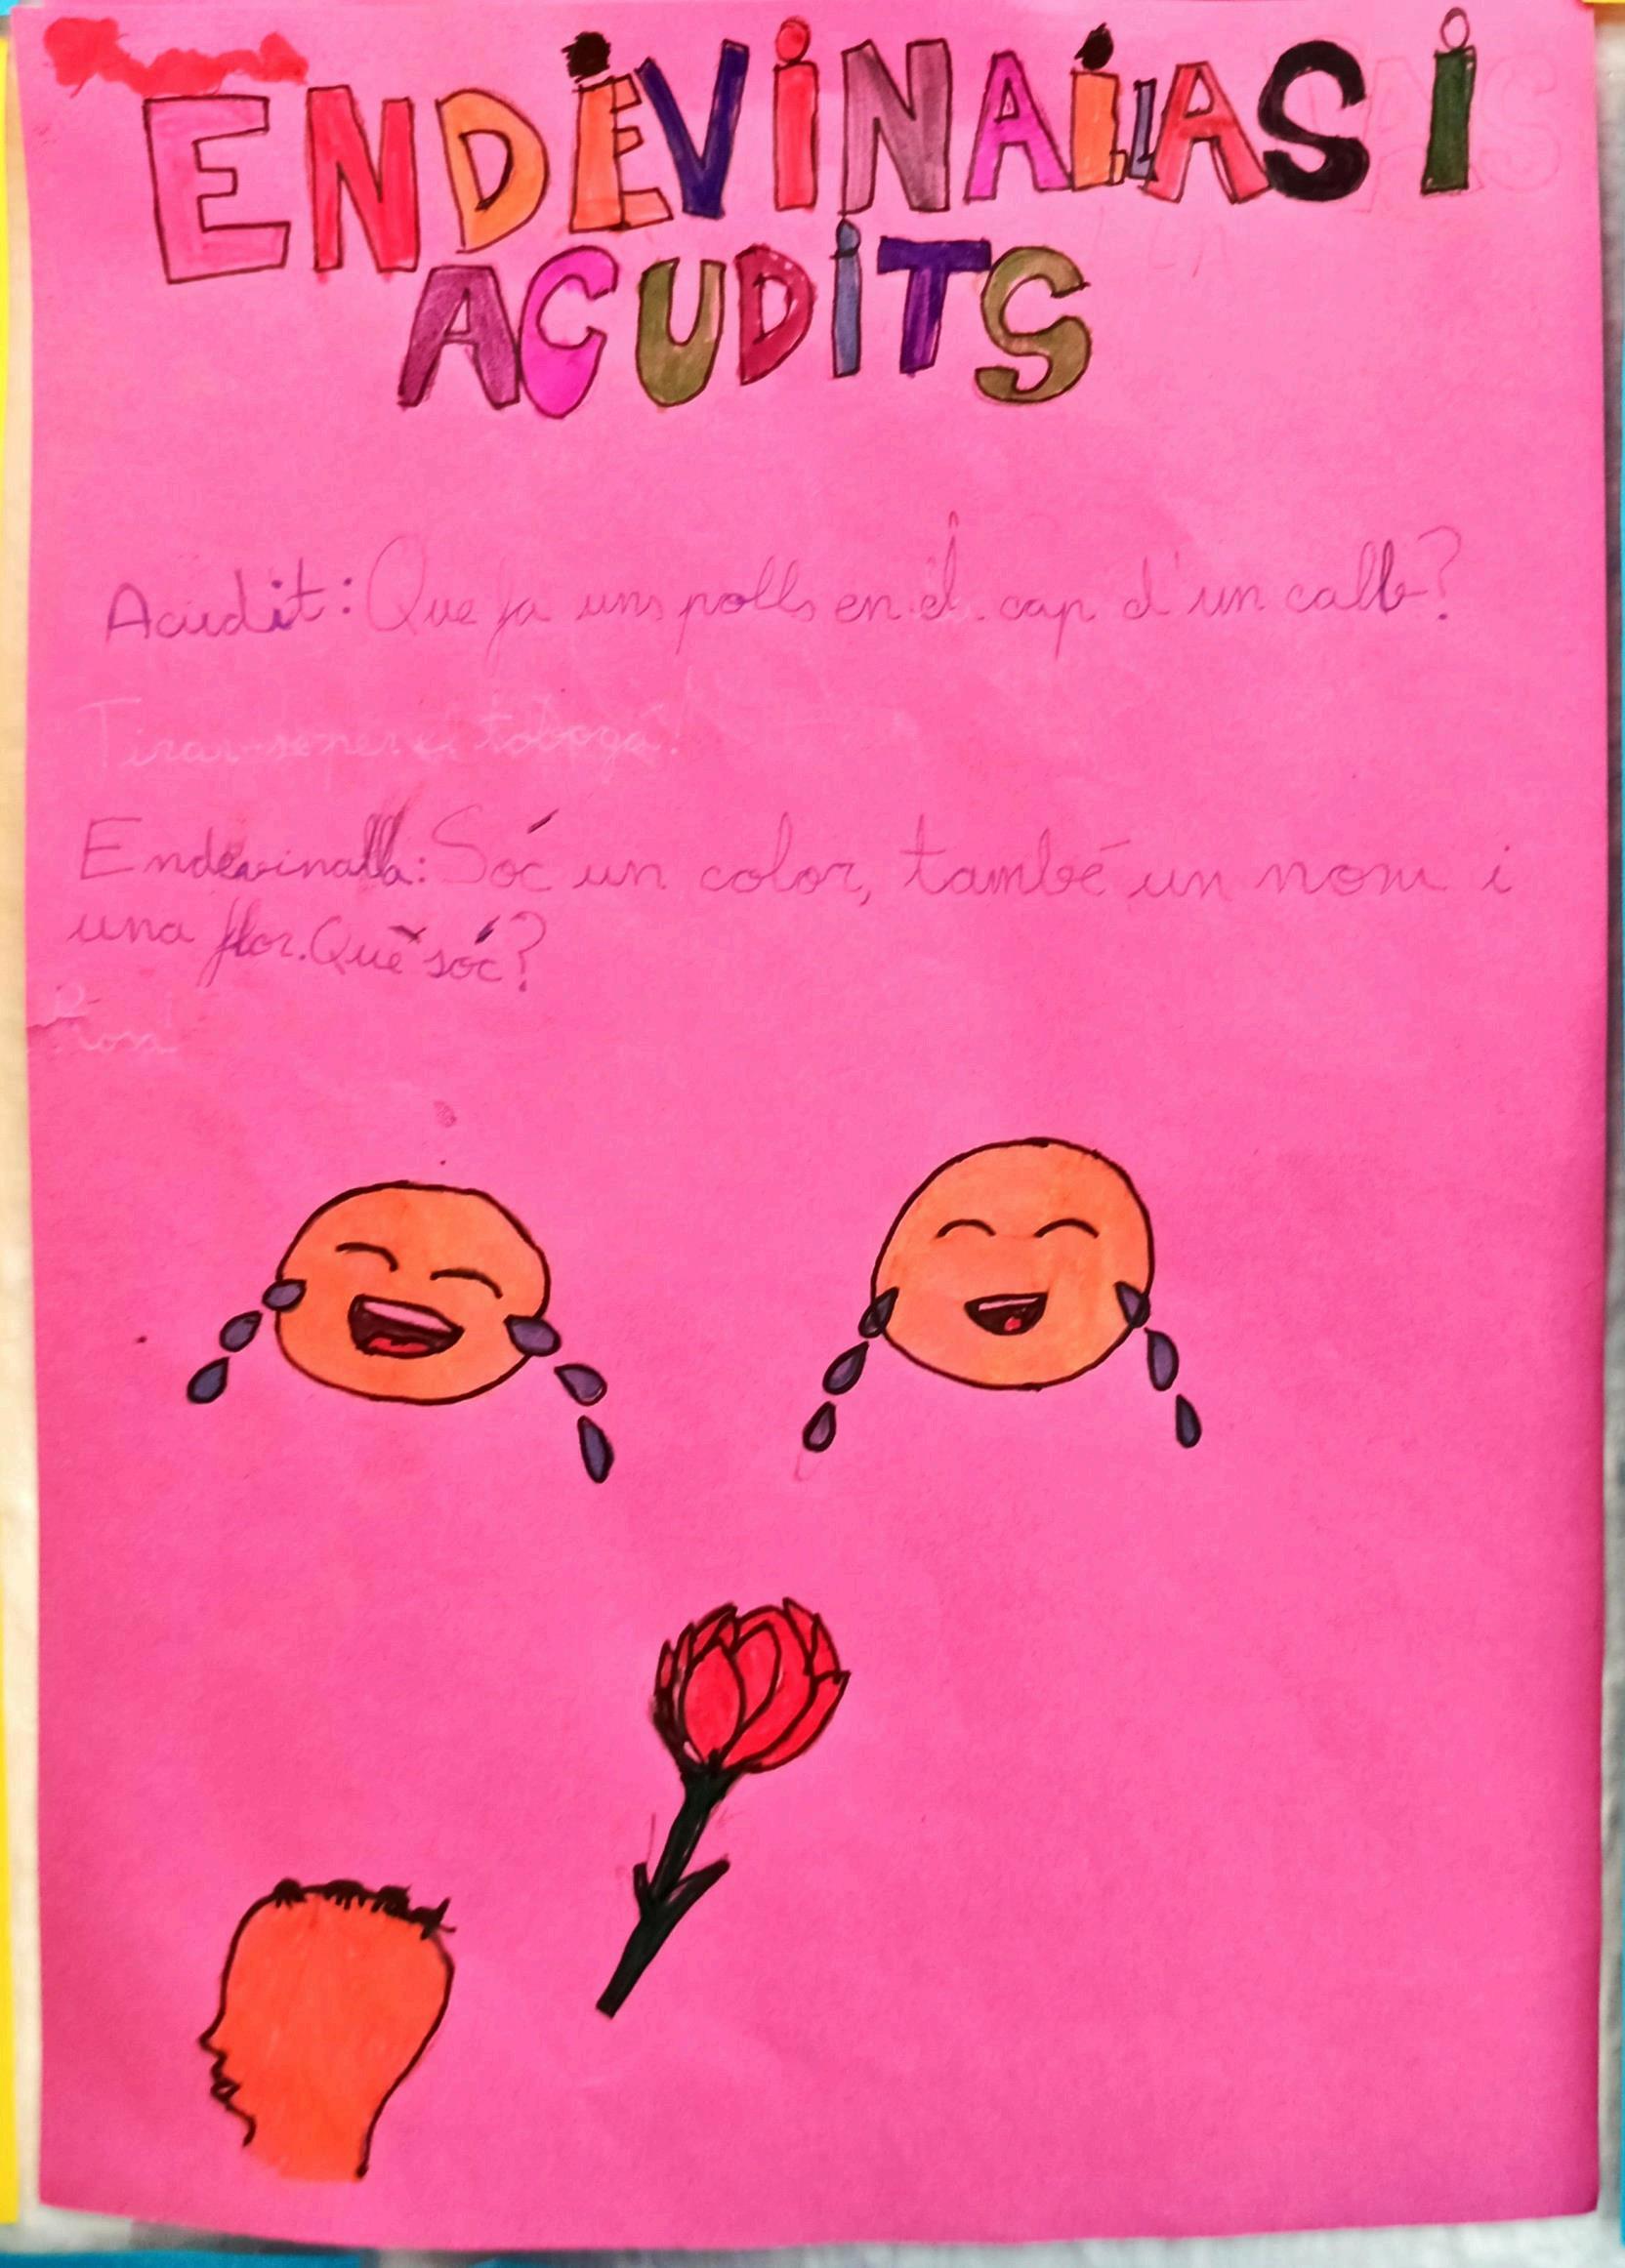 ENDEVINAILLAS I
ACUDITS
Acudit: Que fa uns polls en el cap d'un calb?
Tirar-se per el tobogà!
Endevinalla: Sóc un color, també un nom i
una flor. Què sóc?